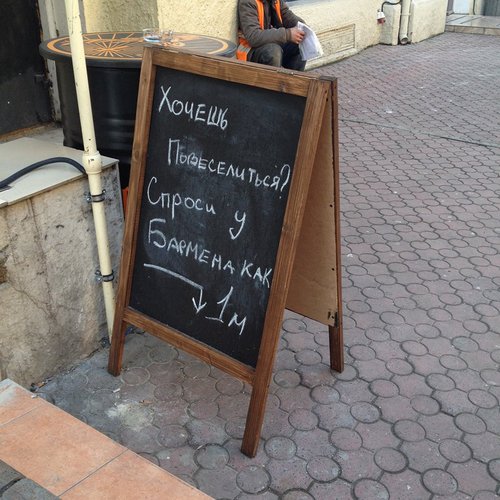 Хочешь
Повеселиться?
Спроси у
Бармена как
1м